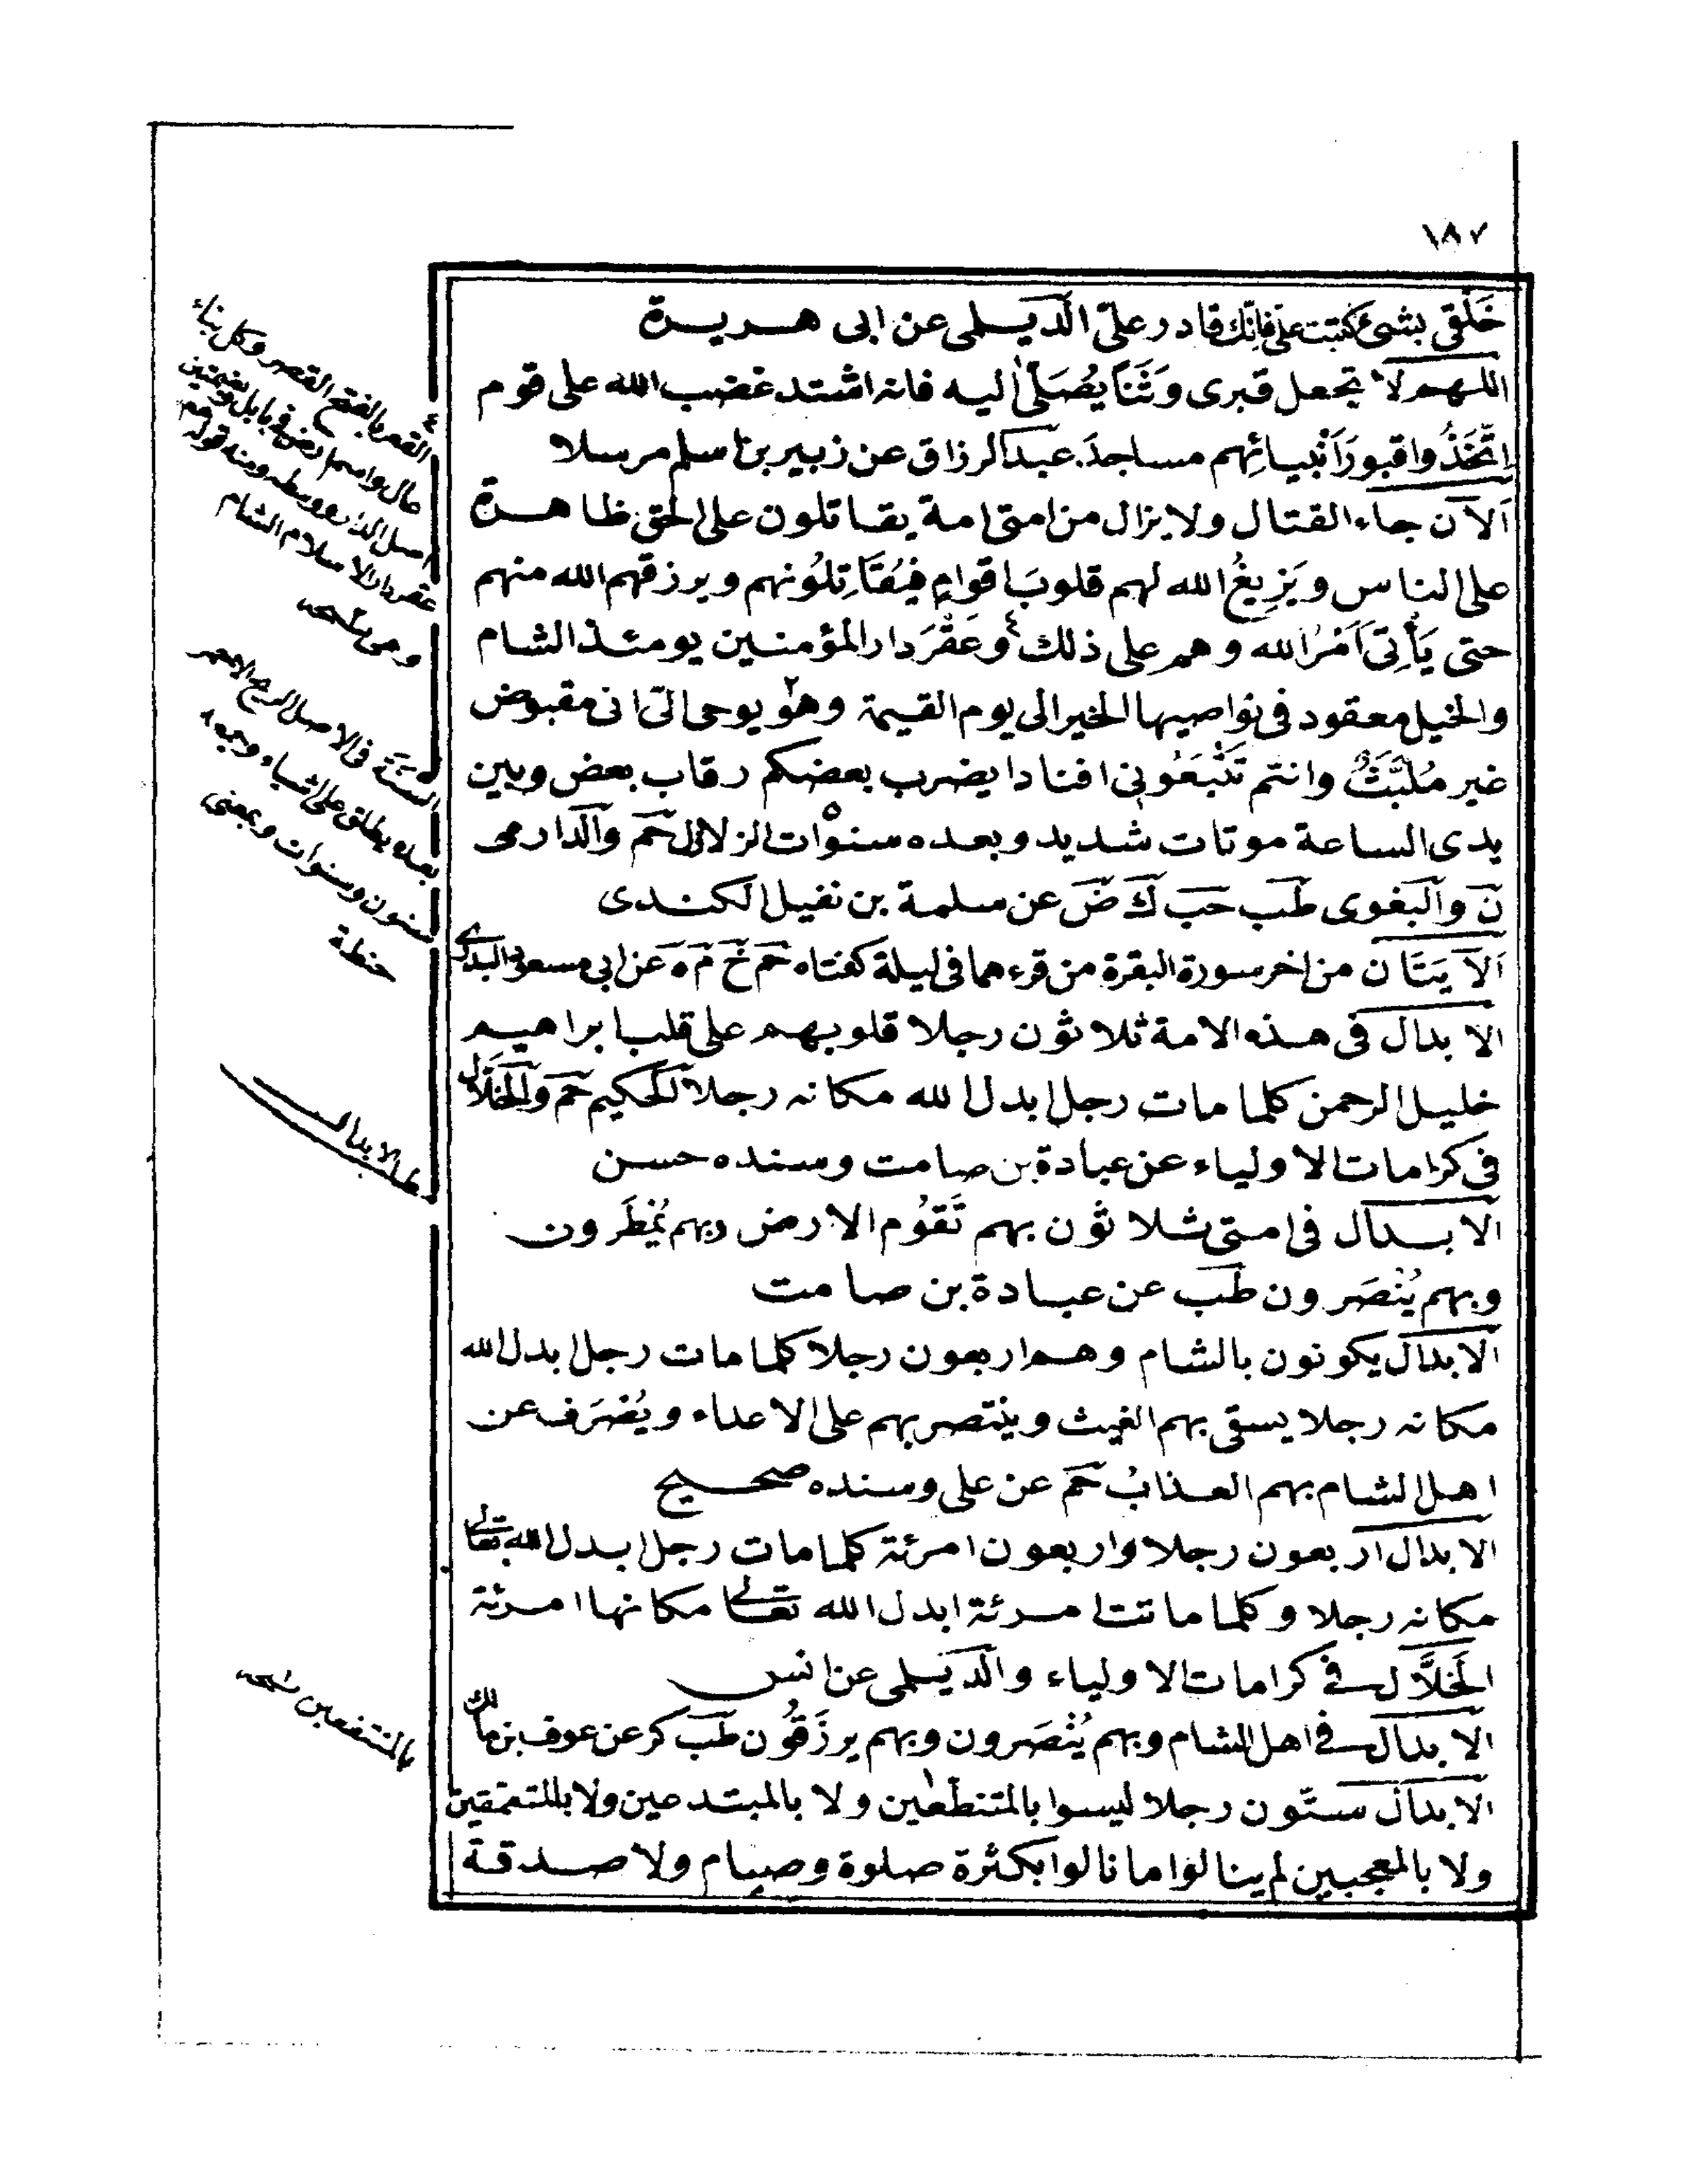 ١٨٧
خَلْقى بشئ كتبت علىّ فانّك قادر علىّ الدّيــلمى عن ابى هــريــرة
اللــهــم لا تجعل قبرى وَثَنًا يُصَلّىٰ اليه فانه اشتد غضب الله على قوم
اِتَّخَذُوا قبورَ اَنْبيائِهم مساجدَ عبد الرزاق عن زبير بن اسلم مرسلا
اَلآن جاء القتال ولا يزال من امتى امة يقاتلون على الحق ظاهرة
على الناس ويَزِيغُ الله لهم قلوبَ اقوامٍ فَيُقَاتِلُونهم ويرزقهم الله منهم
حتى يَأْتِىَ اَمْرُ الله وهم على ذلك وعَقْرَ دار المؤمنين يومئذ الشام
والخيل معقود فى نواصيها الخير الى يوم القيمة وهو يوحى الىّ انى مقبوض
غير مُلَبَّثٌ وانتم تَتْبَعُونى افنادا يضرب بعضكم رقاب بعض وبين
يدى الساعة موتات شديد وبعده سنوات الزلازل حم والدارمى
ن والبغوى طب حب ك ض عن سلمة بن نفيل الكندى
اَلآيَتَان من اخر سورة البقرة من قرءهما فى ليلة كفتاه حم خ م ه عن ابى مسعود البدرى
الابدال فى هذه الامة ثلاثون رجلا قلوبهم على قلب ابراهيم
خليل الرحمن كلما مات رجل ابدل الله مكانه رجلا الحكيم حم والخلّال
فى كرامات الاولياء عن عبادة بن صامت وسنده حسن
الابدال فى امتى ثلاثون بهم تَقوُم الارض وبهم يُمْطَرون
وبهم يُنْصَرون طب عن عبادة بن صامت
الابدال يكونون بالشام وهم اربعون رجلا كلما مات رجل ابدل الله
مكانه رجلا يسقى بهم الغيث وينتصر بهم على الاعداء ويُصْرَف عن
اهل الشام بهم العذابُ حم عن على وسنده صحيح
الابدال اربعون رجلا واربعون امرئة كلما مات رجل ابدل الله تعالى
مكانه رجلا وكلما ماتت امرئة ابدل الله تعالى مكانها امرئة
الخلَّال فى كرامات الاولياء والدّيلمى عن انس
الابدال فى اهل الشام وبهم يُنْصَرون وبهم يرزَقُون طب كر عن عوف بن مالك
الابدال ستّون رجلا ليسوا بالمتنطّعين ولا بالمبتدعين ولا بالمتعمقين
ولا بالمعجبين لم ينالوا ما نالوا بكثرة صلوة وصيام ولا صدقة
القعر بالفتح القصر وكل بناء
عال واسم ارض فى بابل وبضمتين
اصل الدار ووسطه ومنه قوله
عقر دار الاسلام الشام
فى الاصل
يطلق على اشياء
سنون وسنوات وبمعنى
مطلب الابدال
بالمنتفعين نسخه